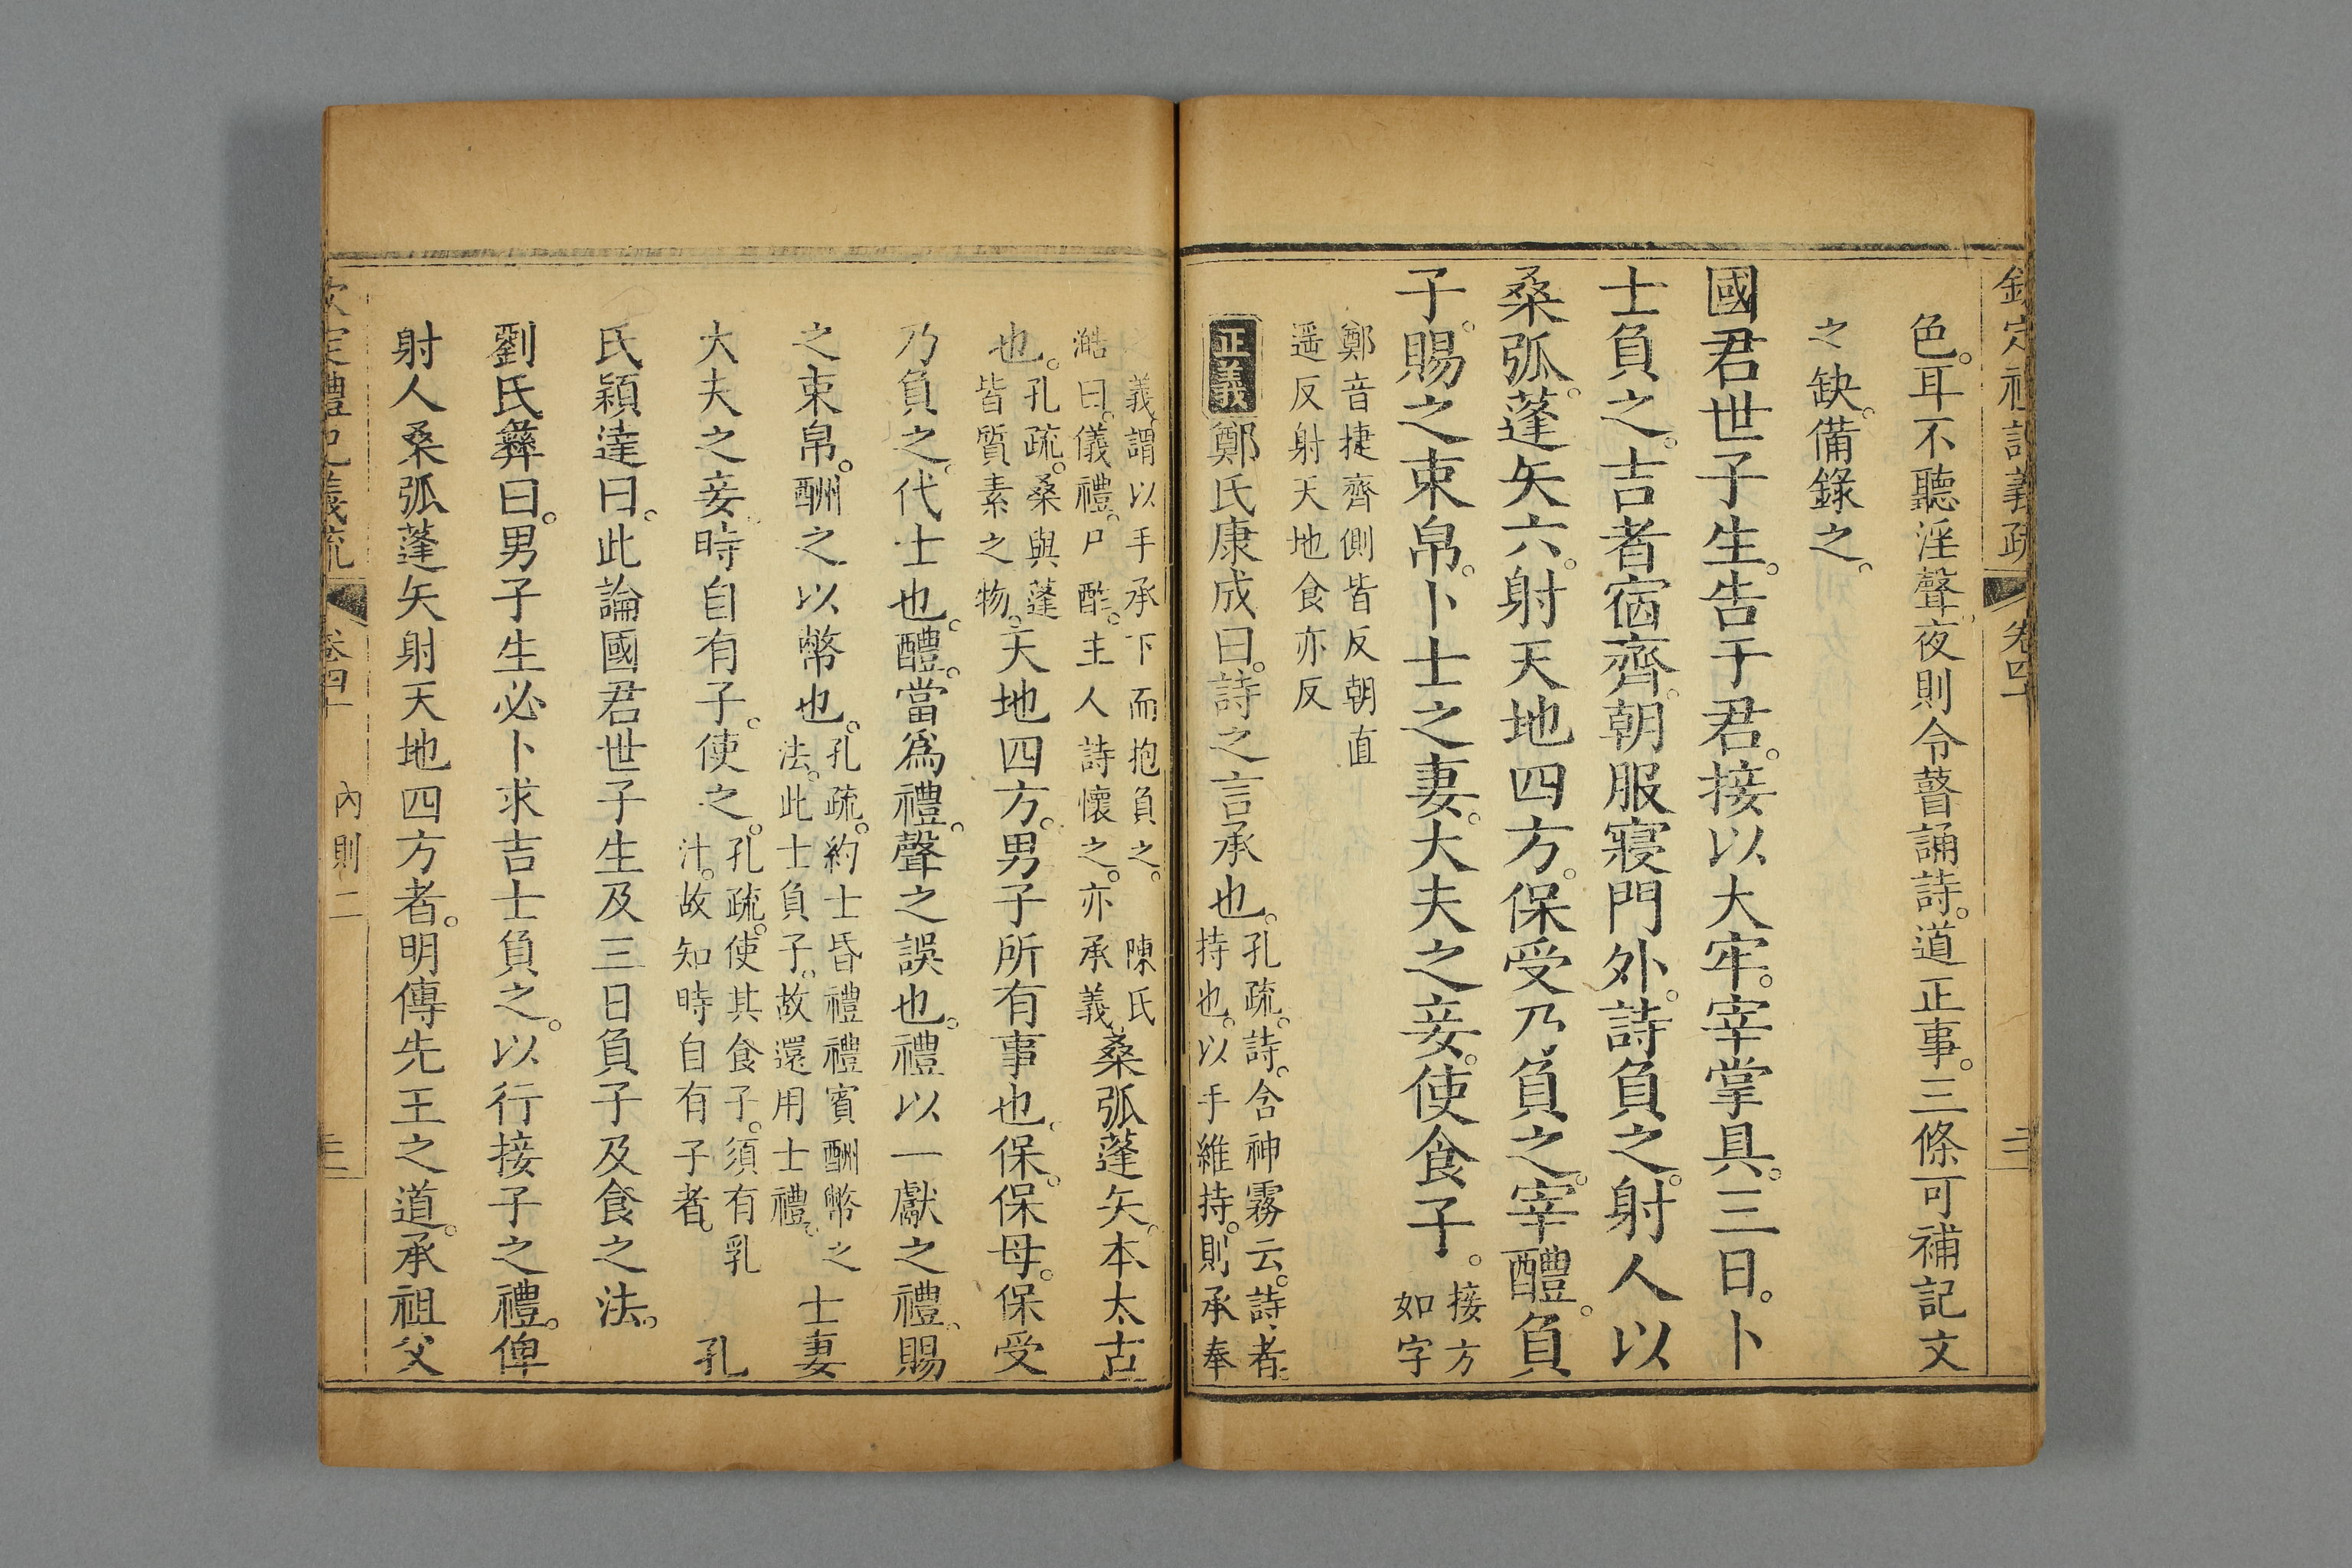 欽定禮記義疏 卷四十
色。耳不聽淫聲。夜則令瞽誦詩。道正事。三條可補記文
之缺。備錄之。
國君世子生。告于君。接以大牢。宰掌具。三日。卜
士負之。吉者宿齊。朝服寢門外。詩負之。射人以
桑弧。蓬矢六。射天地四方。保受乃負之。宰醴。負
子。賜之束帛。卜士之妻。大夫之妾。使食子。接方
如字
鄭音捷齊側皆反朝直
遥反射天地食亦反
正義鄭氏康成曰。詩之言承也。孔疏。詩。含神霧云。詩者。
持也。以手維持。則承奉
義。謂以手承下而抱負之。陳氏
澔曰。儀禮。尸酢。主人詩懷之。亦承義。桑弧蓬矢。本太古
也。孔疏。桑與蓬
皆質素之物。天地四方。男子所有事也。保。保母。保受
乃負之。代士也。醴。當爲禮。聲之誤也。禮以一獻之禮。賜
之束帛。酬之以幣也。孔疏。約士昏禮禮賓酬幣之
法。此士負子。故還用士禮。士妻
大夫之妾。時自有子。使之。孔疏。使其食子。須有乳
汁。故知時自有子者。孔
氏穎達曰。此論國君世子生及三日負子及食之法。
劉氏彝曰。男子生必卜求吉士負之。以行接子之禮。俾
射人桑弧蓬矢射天地四方者。明傳先王之道。承祖父
欽定禮記義疏 卷四十 內則二